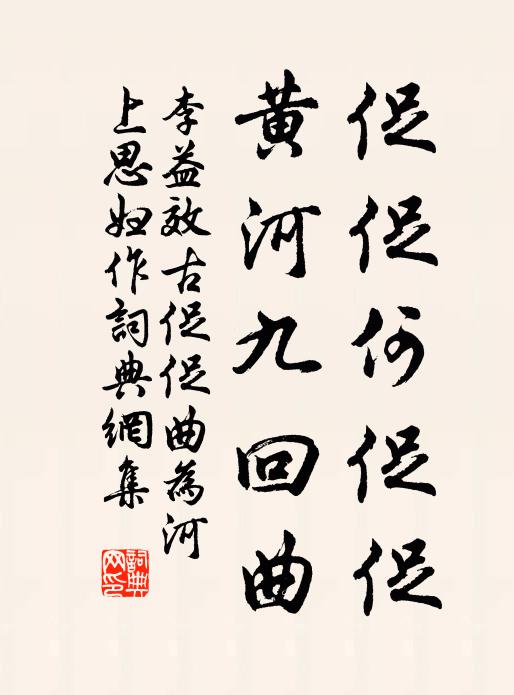 促促何促促
黃河九回曲
李益效古促促曲為河
上思婦作詞典網集
詞典
网印